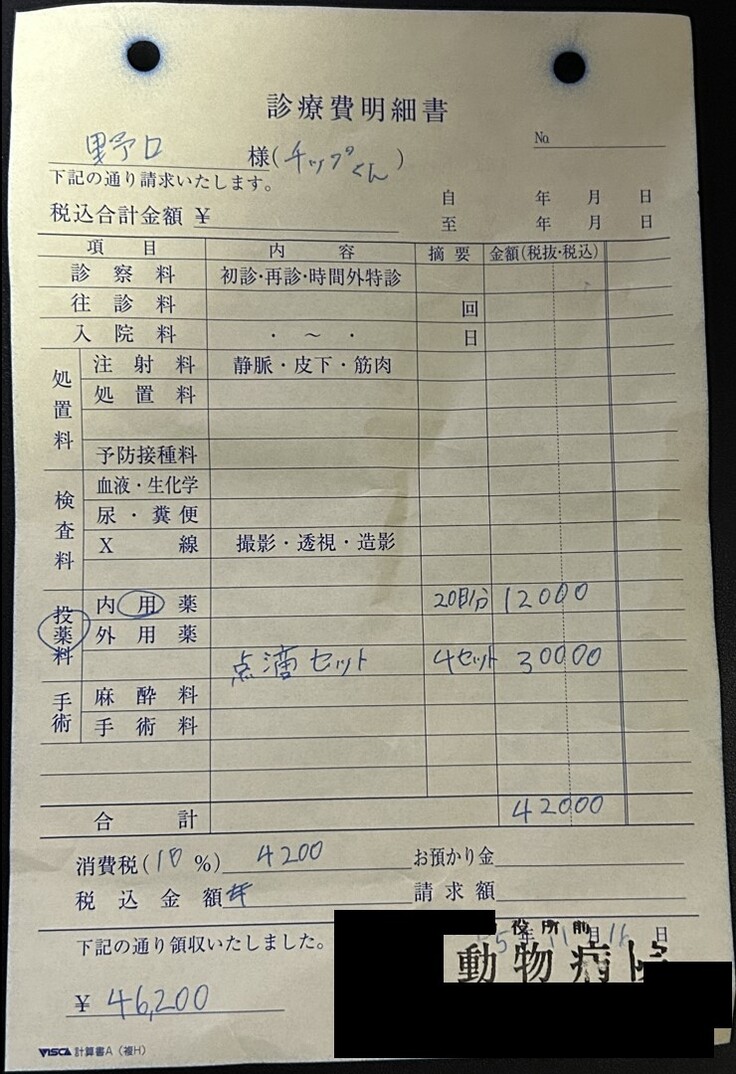 診療費明細書
野口 様(チップくん)
No.
下記の通り請求いたします。
自 年 月 日
税込合計金額 ¥
至 年 月 日
項目 内容 摘要 金額(税抜・税込)
診察料 初診・再診・時間外特診
往診料 回
入院料 ・ ~ ・ 日
処置料
注射料 静脈・皮下・筋肉
処置料
予防接種料
検査料
血液・生化学
尿・糞便
X線 撮影・透視・造影
投薬料
内用薬 20日分 12000
外用薬
点滴セット 4セット 30000
手術
麻酔料
手術料
合計 42000
消費税(10%) 4200 お預かり金
税込金額 請求額
下記の通り領収いたしました。
年11月16日
役所前
動物病院
¥ 46,200
VISCA 計算書A(複H)